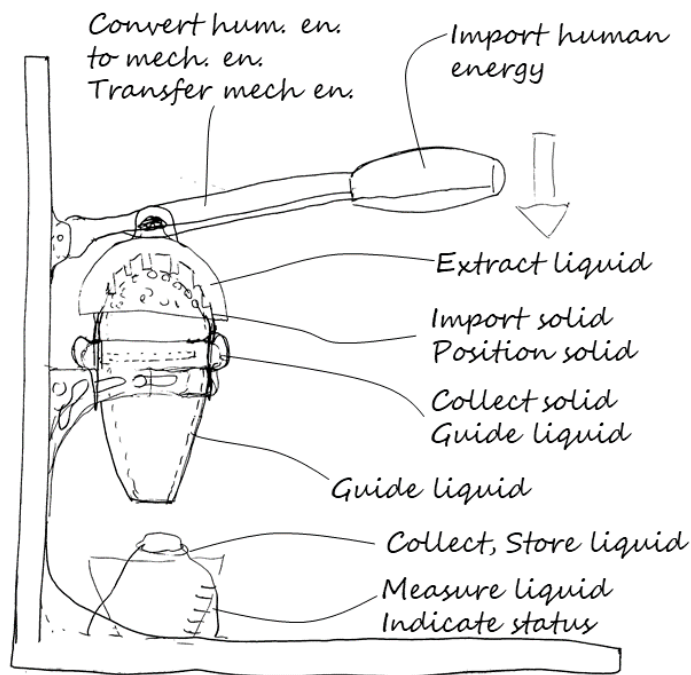 Convert hum. en.
to mech. en.
Transfer mech en.
Import human
energy
Extract liquid
Import solid
Position solid
Collect solid
Guide liquid
Guide liquid
Collect, Store liquid
Measure liquid
Indicate status